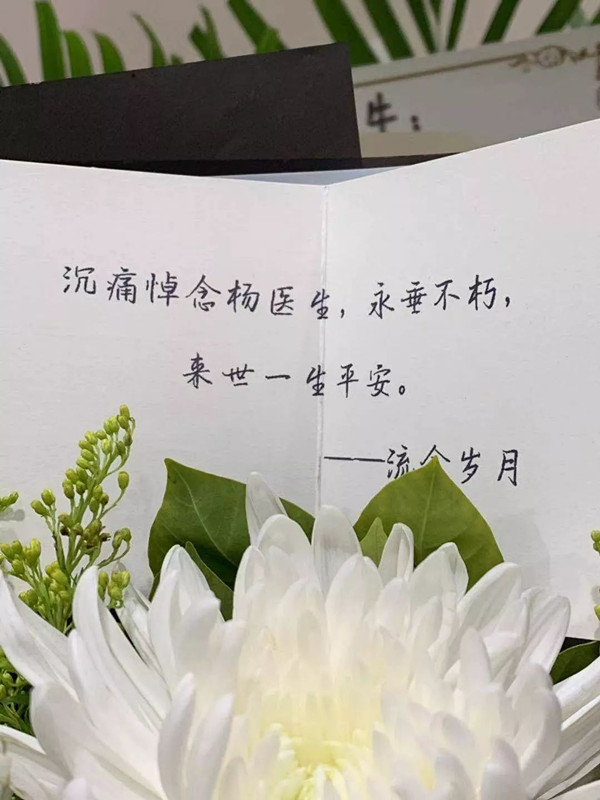 沉痛悼念杨医生，永垂不朽，
来世一生平安。
——流金岁月